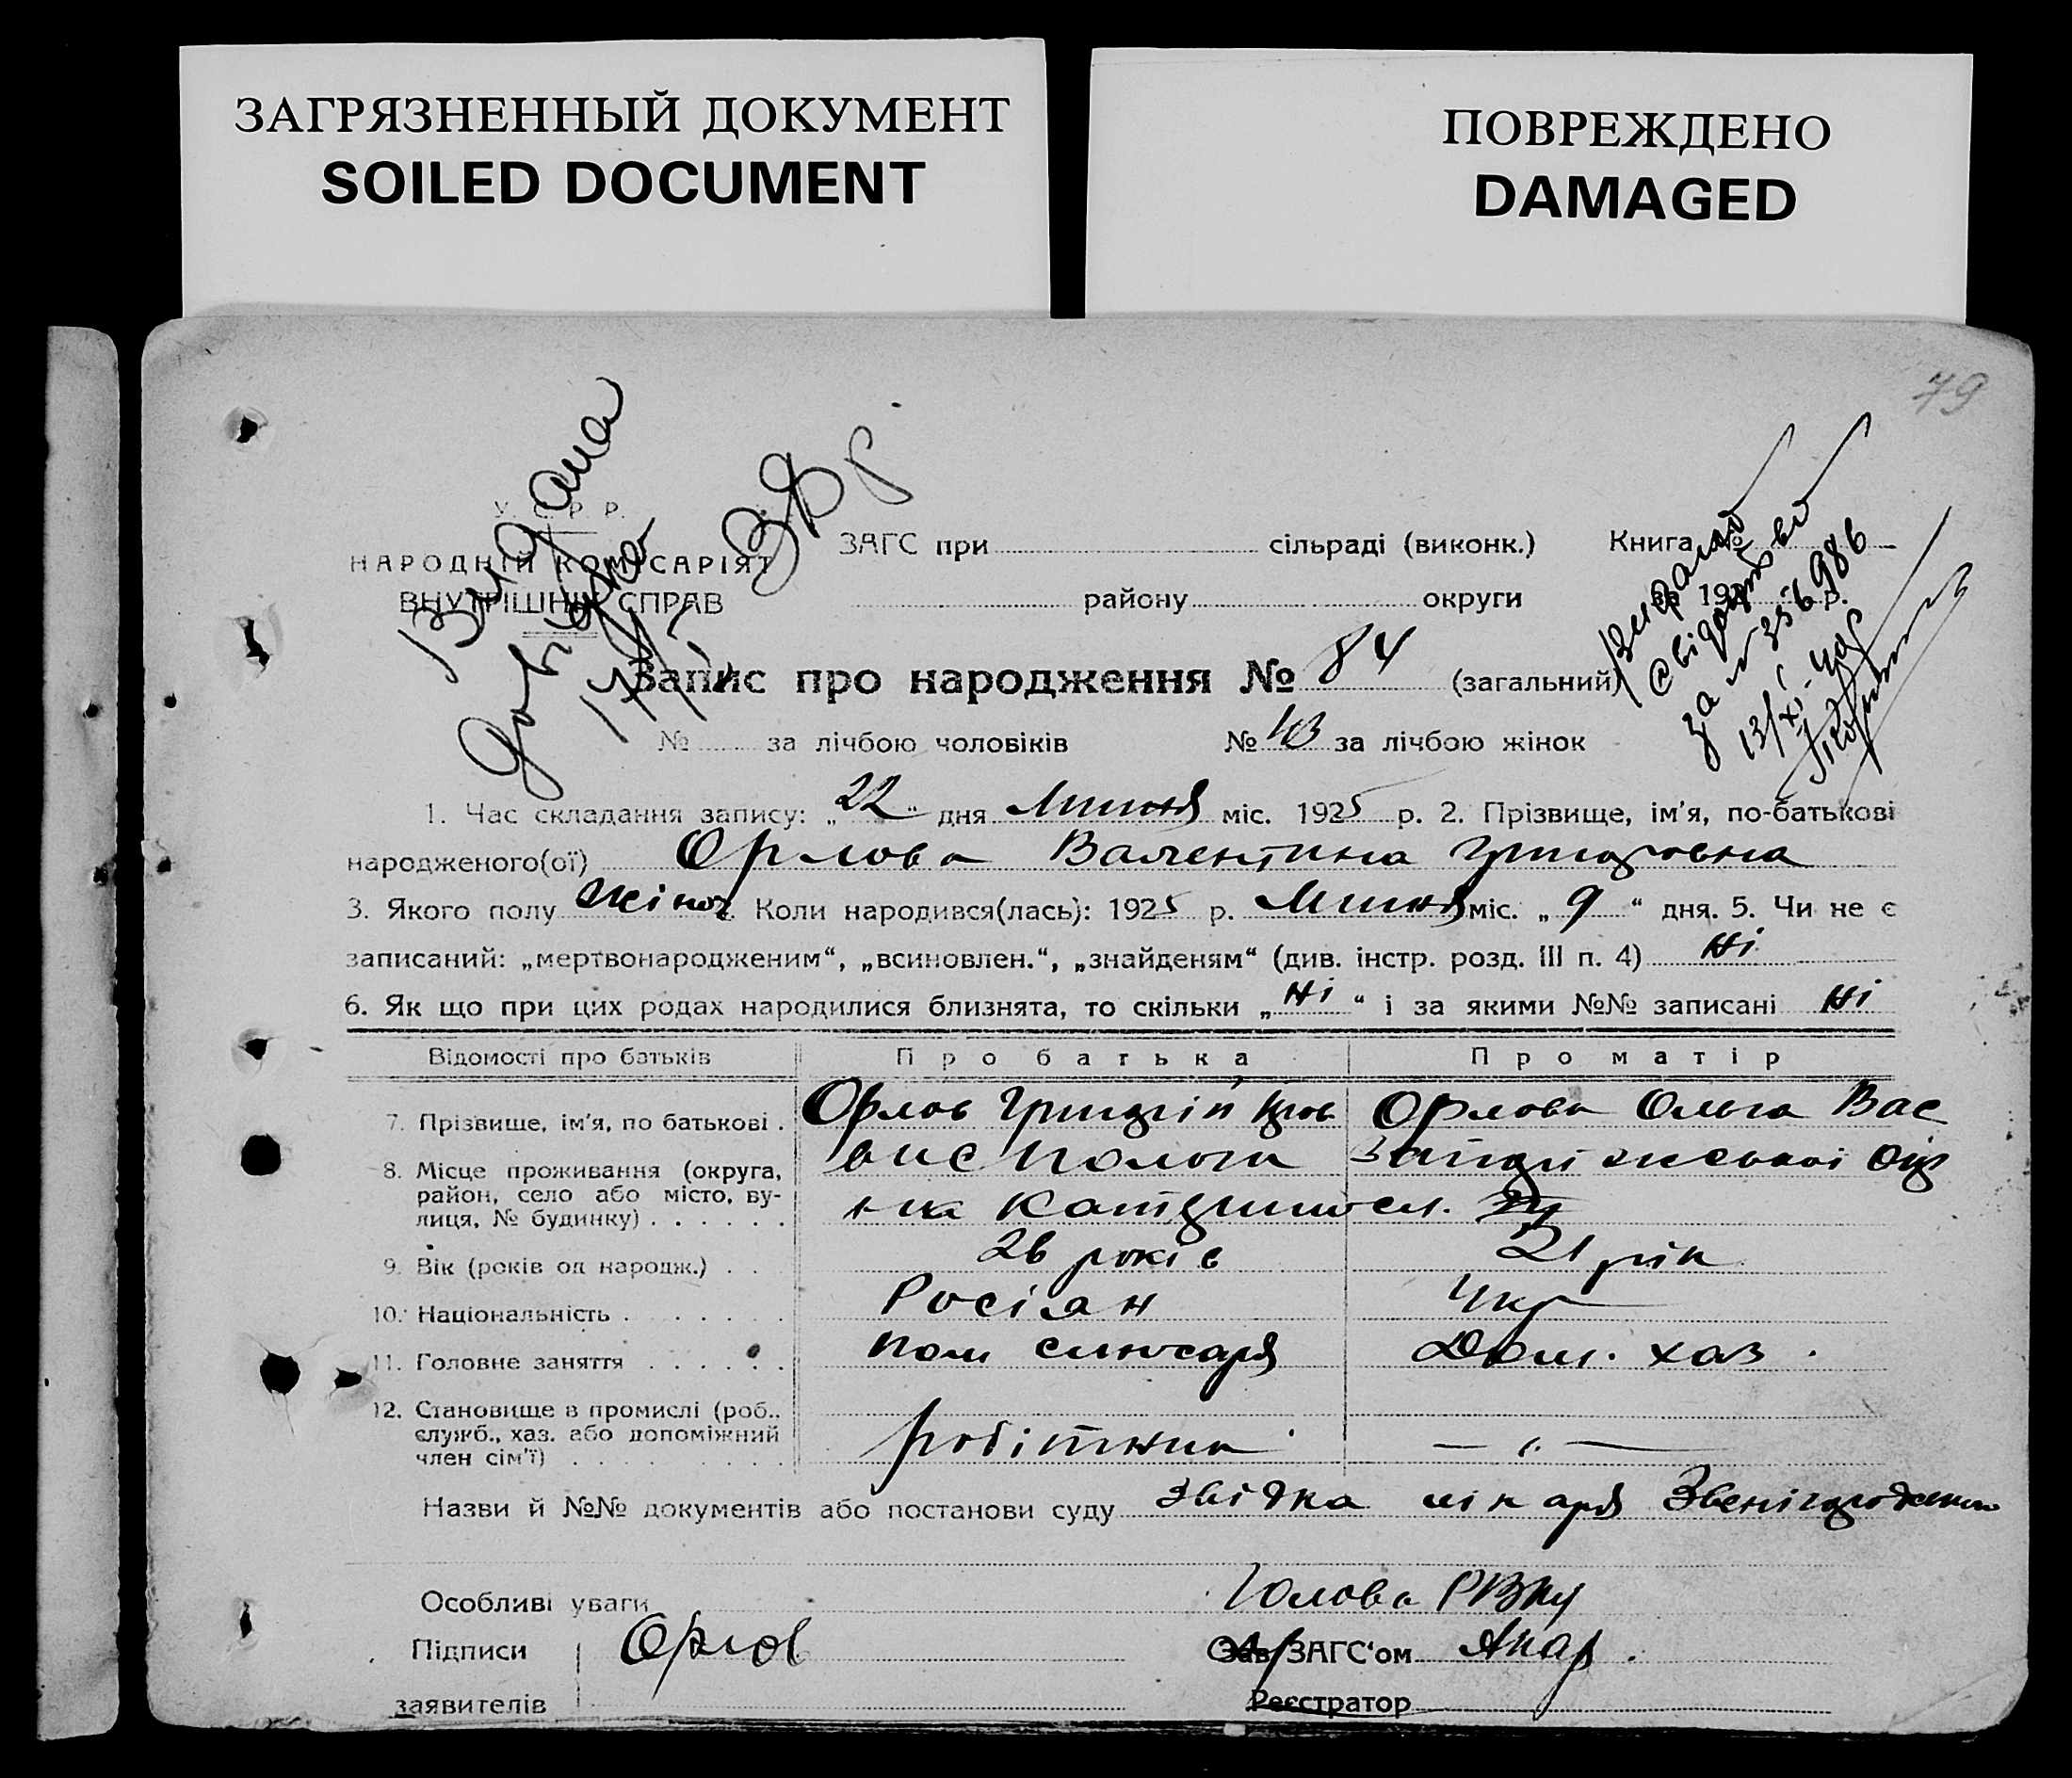 ЗАГРЯЗНЕННЫЙ ДОКУМЕНТ
SOILED DOCUMENT
ПОВРЕЖДЕНО
DAMAGED
79
Видана
довідка
38 р
У. С. Р. Р.
НАРОДНІЙ КОМІСАРІЯТ
ВНУТРІШНІХ СПРАВ
ЗАГС при сільраді (виконк.) Книга №
району округи за 192 р.
Запис про народження № 84 (загальний)
№ за лічбою чоловіків № 43 за лічбою жінок
свідоцтво
за № 356986
13/XI-40р
1. Час складання запису: „22“ дня Липня міс. 1925 р. 2. Прізвище, ім'я, по-батькові
народженого(ої) Орлова Валентина Григоровна
3. Якого полу жіноч. Коли народився(лась): 1925 р. Липня міс. „9“ дня. 5. Чи не є
записаний: „мертвонародженим“, „всиновлен.“, „знайденям“ (див. інстр. розд. III п. 4) Ні
6. Як що при цих родах народилися близнята, то скільки „Ні“ і за якими №№ записані Ні
Відомості про батьків Про батька Про матір
7. Прізвище, ім'я, по батькові . Орлов Григорій Орлова Ольга Вас
8. Місце проживання (округа,
район, село або місто, ву-
лиця, № будинку) . . . . . .
Пологи Запоріжської окр
9. Вік (років од народж.) . . 26 років 21 рік
10. Національність . . . . . . . Росіян Укр
11. Головне заняття . . . . . . пом слюсаря Дом. хаз.
12. Становище в промислі (роб.,
служб., хаз. або допоміжний
член сім'ї) . . . . . . . . робітник — " —
Назви й №№ документів або постанови суду звідка лікаря
Особливі уваги Голова РВКу
Підписи Орлов Зав/ЗАГС'ом
заявителів Реєстратор